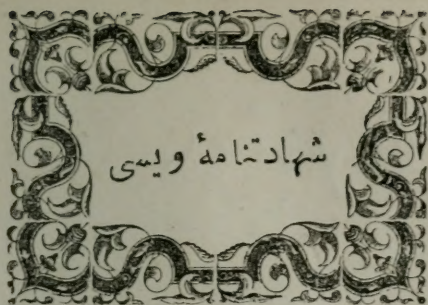 شهادتنامهٔ ویسی